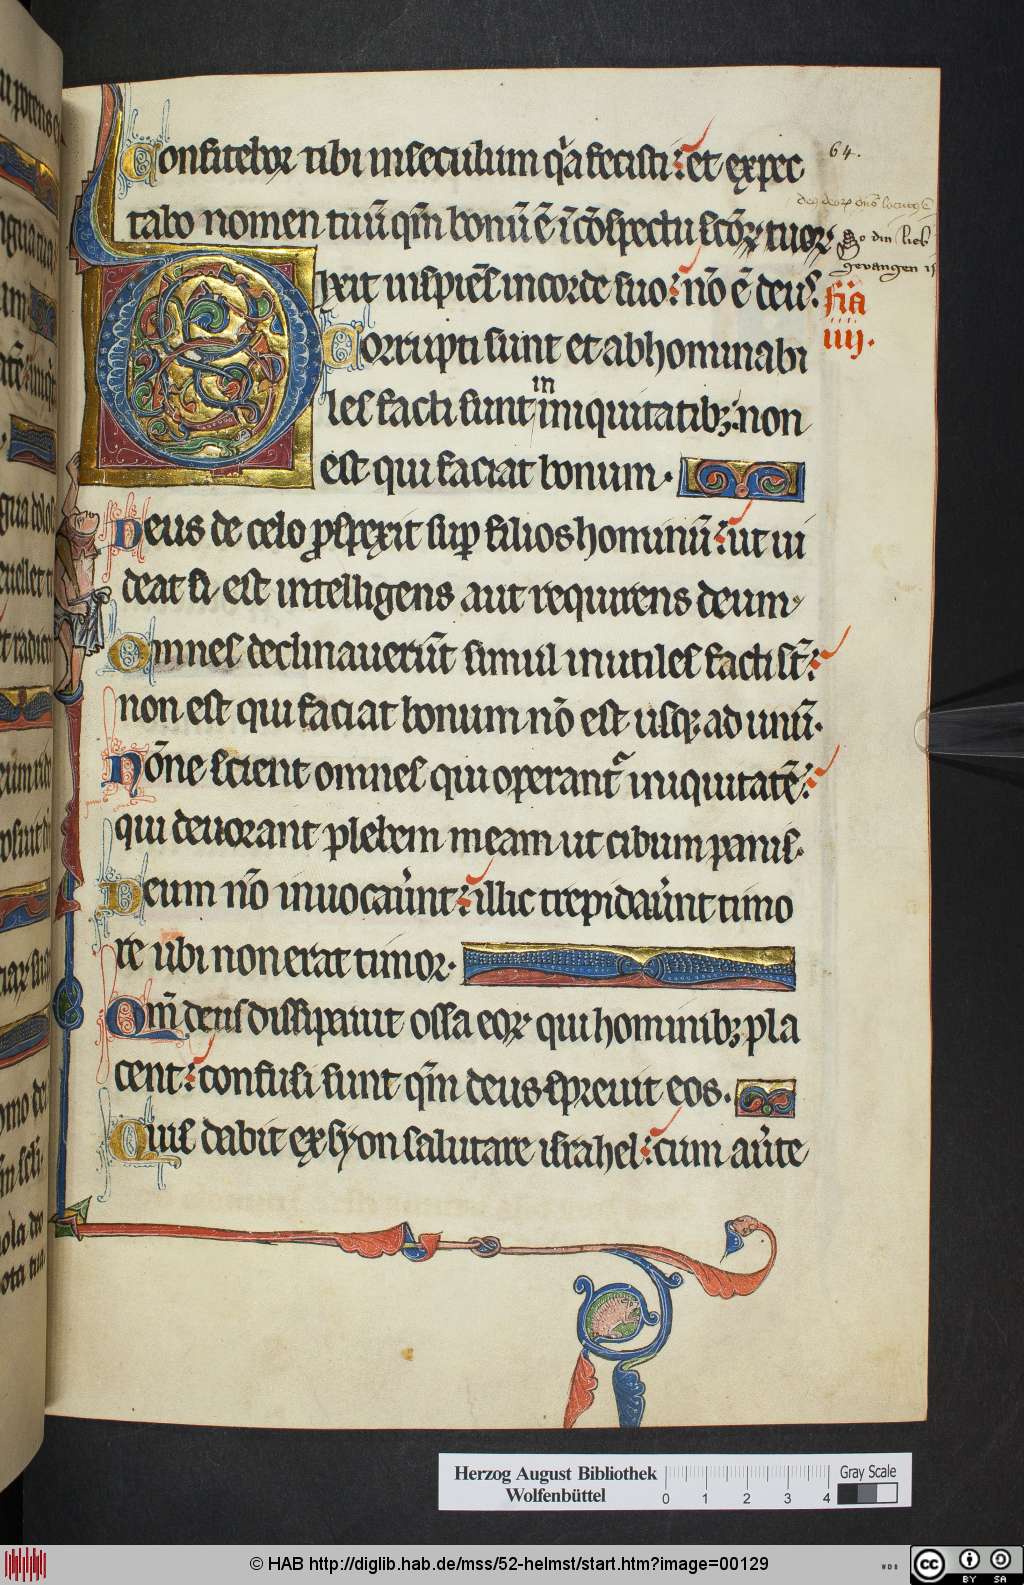 Confitebor tibi inseculum qa fecisti et expec
64.
tabo nomen tuū qm̄ bonū ē ī cōspectu scōꝝ tuoꝝ
So din lieb
gevangen is
Dixit inspiēs incorde suo nō ē deus.
fīa
iiij.
Corrupti sunt et abhominabi
in
les facti sunt iniquitatibꝫ non
est qui faciat bonum.
Deus de celo ꝓspexit suꝑ filios hominū ut ui
deat si est intelligens aut requirens deum
Omnes declinauerūt simul inutiles facti st̄
non est qui faciat bonum nō est usqꝫ ad unū.
Nōne scient omnes qui operant᷑ iniquitatē
qui deuorant plebem meam ut cibum panis.
Deum nō inuocaūnt illic trepidaūnt timo
re ubi non erat timor.
Qm̄ deus dissipauit ossa eoꝝ qui hominibꝫ pla
cent confusi sunt qm̄ deus spreuit eos.
Quis dabit exsyon salutare israhel cum aūte
Herzog August Bibliothek
Wolfenbüttel
0 1 2 3 4
Gray Scale
© HAB http://diglib.hab.de/mss/52-helmst/start.htm?image=00129
WDB
cc BY SA